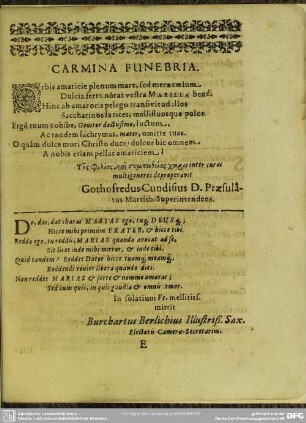 CARMINA FUNEBRIA.
Orbis amaricie plenum mare, sed mera cœlum
Dulcia fert: nôrat vestra MARILLA bene.
Hinc ab amaroris pelago transivit ad illos
Saccharinos latices, mellifluosque polos.
Ergò tuum cohibe, Genitor doctissime, luctum,
Ac tandem lachrymas, mater, omitte tuas.
O quàm dulce mori Christo duce! dulce hic omnem
A nobis etiam pellat amariciem!
Τῆς φιλίας καὶ συμπαθείας χάριν inter curas
multigeneres deproperavit
Gothofredus Cundisius D. Præsulâtus
Martisb. Superintendens.
De, des, dat charas MARIAS ego, tuq́, DEUSq́;
Hicce mihi primùm FRATER, & hicce tibi.
Reddo ego, tu reddis, MARIAS quando avocat ad se,
Sit licet inde mihi mœror, & inde tibi.
Quid tandem? Reddet Dator hicce tuamq́, meamq́,
Reddendi veniet libera quando dies.
Non reddet MARIAS & forte & nomine amaras;
Sed cum quîs, in quîs gaudia & omnis amor.
In solatium Fr. mellitiss.
mittit
Burchartus Berlichius Illustriss. Sax.
Electoris Cameræ-Secretarius.
E